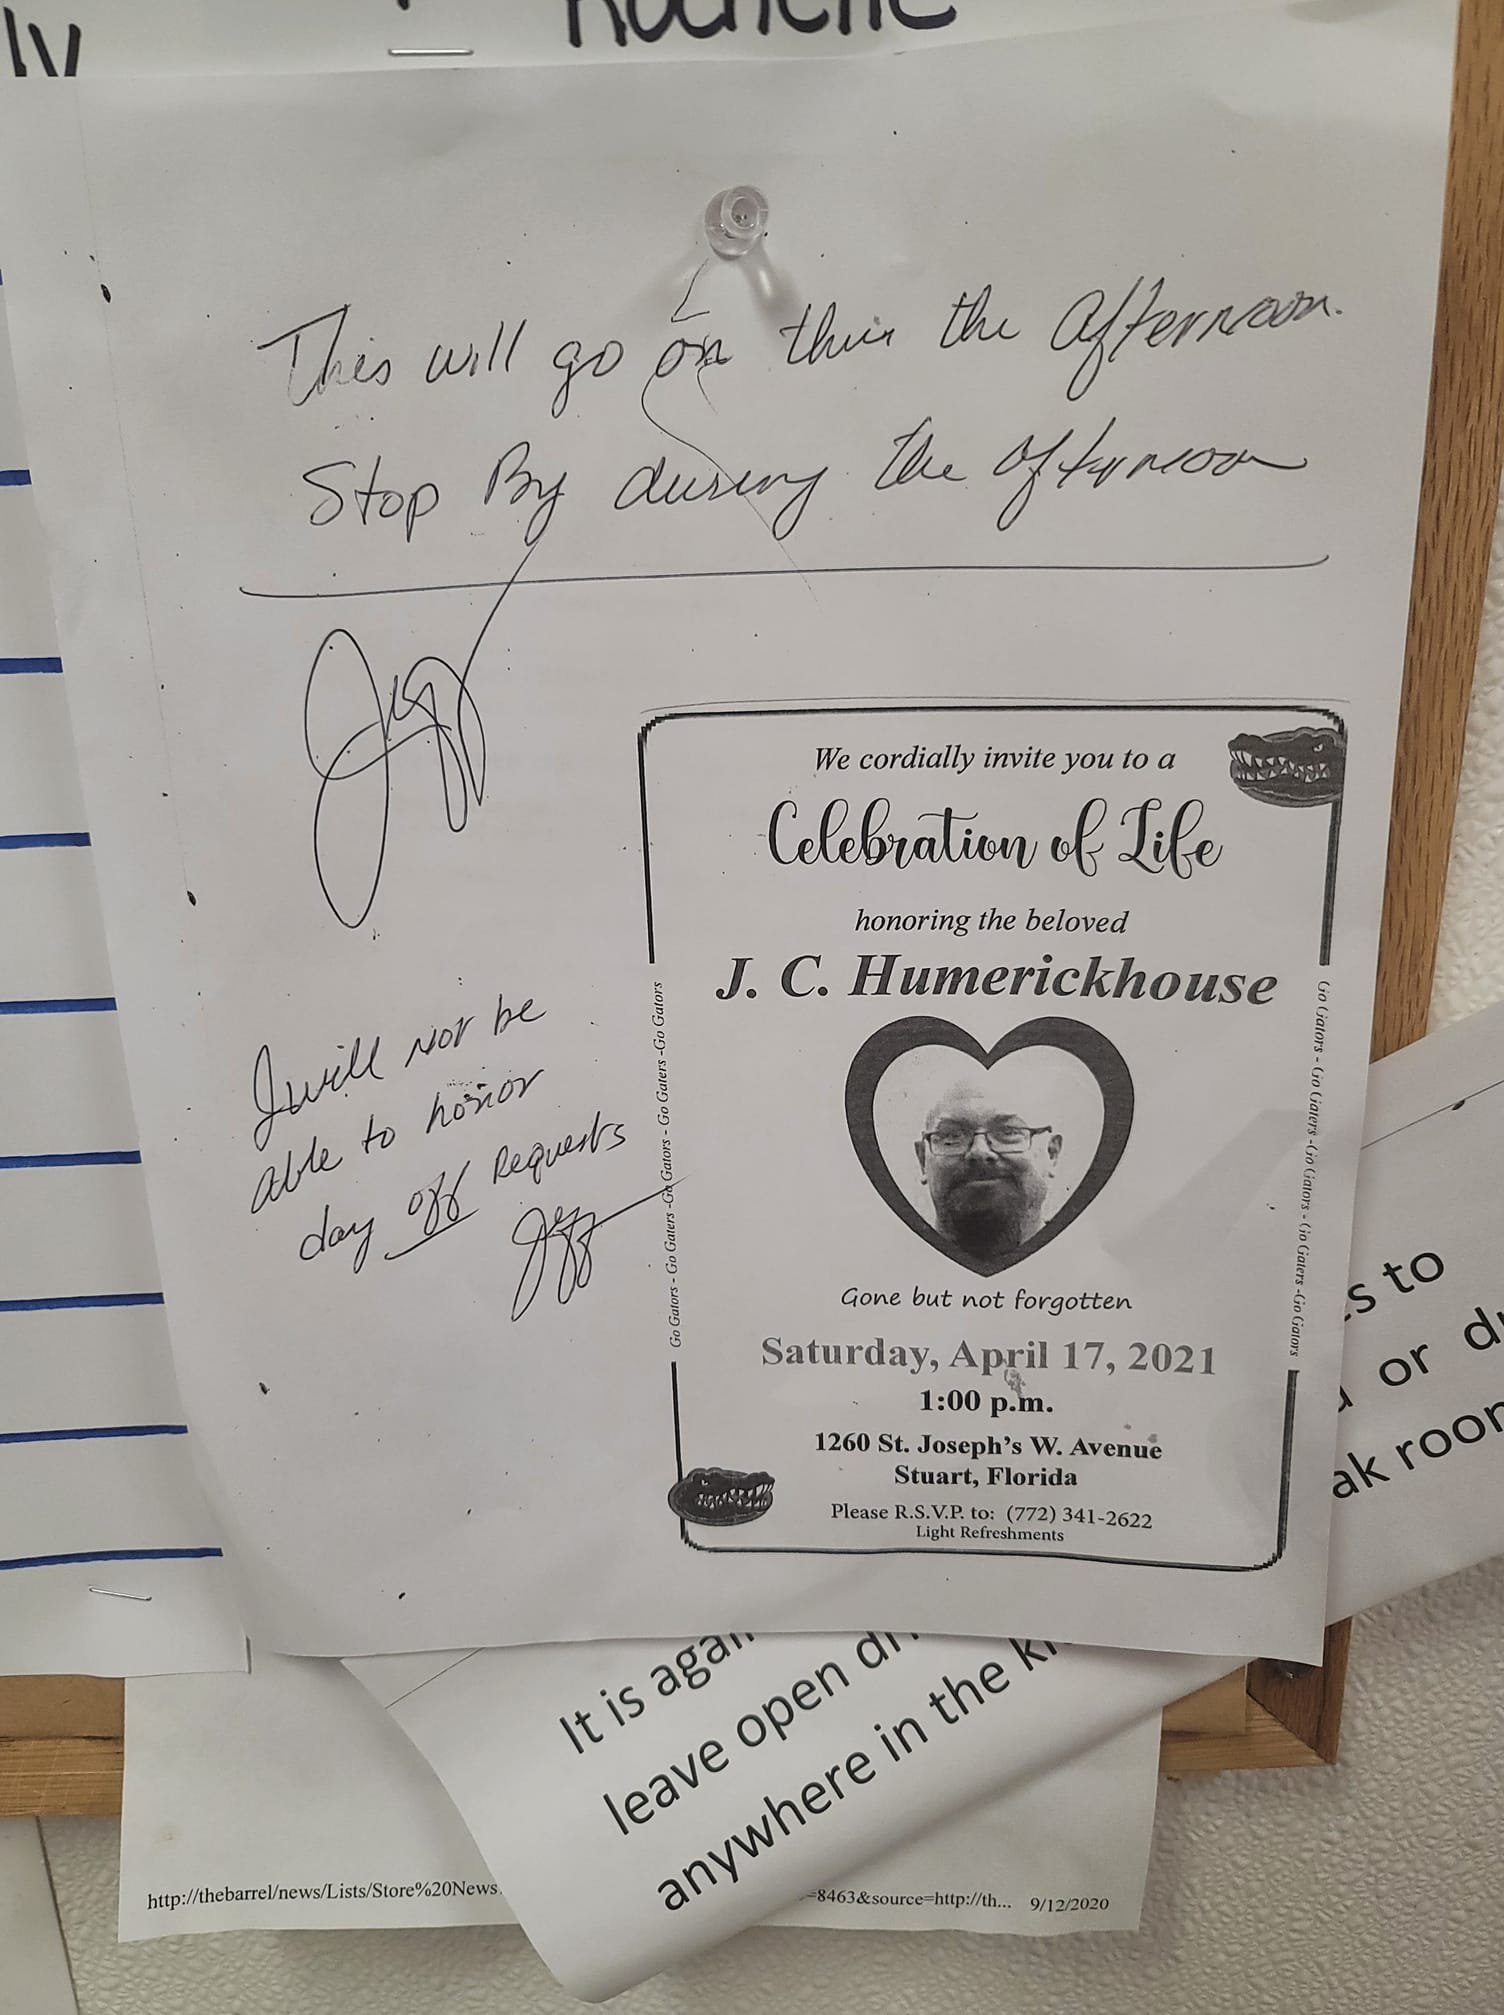 This will go on thru the afternoon.
Stop By during the afternoon
Jeff
I will not be
able to honor
day off requests
Jeff
We cordially invite you to a
Celebration of Life
honoring the beloved
J. C. Humerickhouse
Go Gators - Go Gaters -Go Gators - Go Gaters -Go Gators
Go Gators - Go Gaters -Go Gators - Go Gaters -Go Gators
Gone but not forgotten
Saturday, April 17, 2021
1:00 p.m.
1260 St. Joseph's W. Avenue
Stuart, Florida
Please R.S.V.P. to: (772) 341-2622
Light Refreshments
s to
or
ak room
It is again
leave open
anywhere in the
http://thebarrel/news/Lists/Store%20News
=8463&source=http://th... 9/12/2020